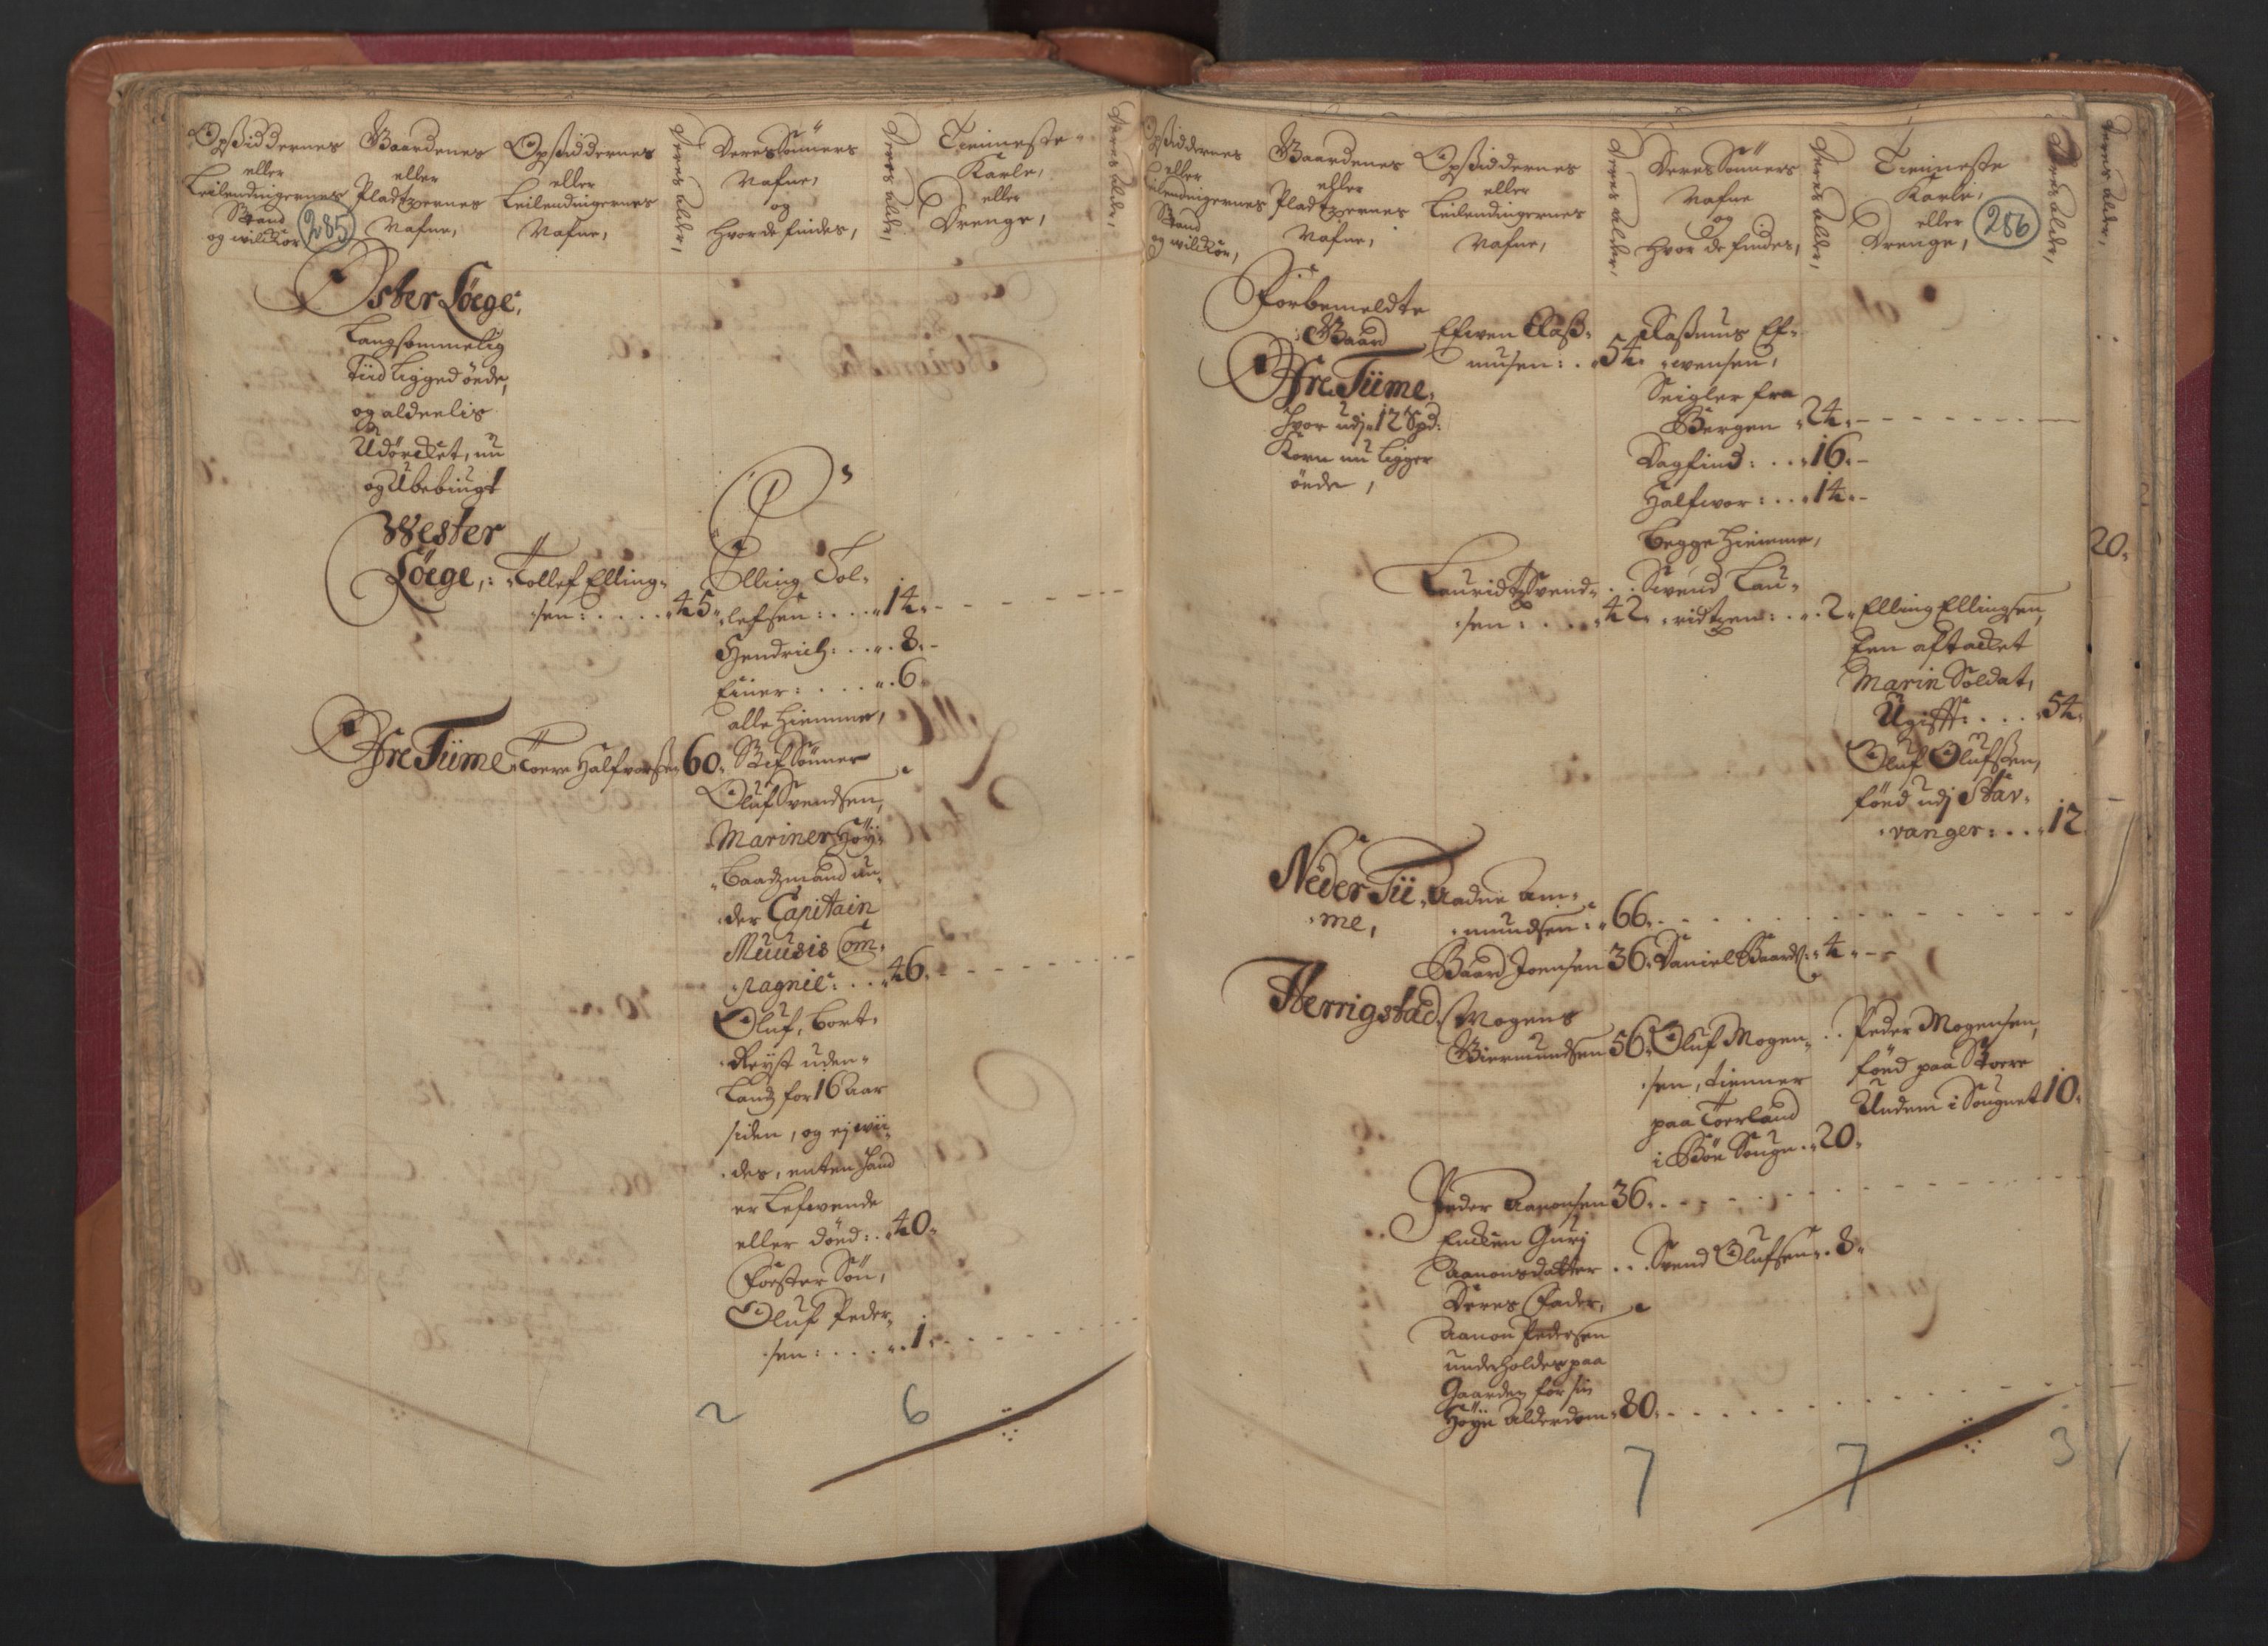 Opsiddernes
eller
Leilendingernes
Stand
og vilckor
285
Gaardenes
eller
Pladtzernes
Nafne,
Opsiddernes
eller
Leilendingernes
Nafne,
Deres Alder,
Deres Sönners
Nafne,
og
hvor de findes,
Deres Alder,
Tienneste
Karle,
eller
Drenge,
Deres Alder,
Öster Söege,
Langsommelig
Tiid ligged öede,
og aldeelis
Udörcket, nu
og Ubebÿngt
Wester
Söege,: Tollef Elling-
sen: . . . . 45.
Elling Tol-
lefsen: . . . 14.
Hendrich: . . . 8.
Einer: . . . . 6.
alle hiemme,
Öfre Tiime Toere Halfvorsen 60.
Stif Sönner
Oluf Svendsen,
Mariner Höy-
baadzmand un-
der Capitain
Muusis Com-
pagnie: . . 46.
Oluf, bort-
Reÿst uden-
Landz for 16 Aar
siden, og ej vii-
des, enten hand
er Lefvende
eller döed: . 40.
Foester Sön,
Oluf Peder-
sen: . . . . . 1.
2
6
Opsiddernes
eller
Leilendingernes
Stand
og vilckor,
Gaardenes
eller
Pladtzernes
Nafne,
Opsiddernes
eller
Leilendingernes
Nafne,
Deres Alder,
Deres Sönners
Nafne
og
Hvor de findes,
Deres Alder,
Tienneste
Karle,
eller
Drenge,
286
Deres Alder,
Deres Alder,
Forbemeldte
Gaard
Öfre Tiime,
hvor udj 12 Spd:
Korn nu ligger
öede,
Efwen Rass-
musen: . 54.
Rasmus Ef-
wensen,
Seigler fra
Bergen 24.
Dagfind: . . . 16.
Halfwor: . . . 14.
begge hiemme,
20.
Lauridt Svend-
sen: . . . 42.
Swend Lau-
ridtzen: . . 2.
Elling Ellingsen,
Een aftacket
Marin Soldat,
Ugift: . . . 54.
Oluf Olufsen,
föed udj Stav-
vanger: . . . 12.
Neder Tii-
me,
Aadne Am-
mundsen: 66.
Baard Joensen 36. Daniel Baards: 4.
Herrigstad
Mogens
Biermundsen 56.
Oluf Mogen-
sen, tienner
paa Toerland
i Böe Sougn . 20.
Peder Mogensen,
föed paa Stoere
Undem i Sougnet 10.
Peder Aanonsen 36.
Encken Gurj
Aanonsdatter . . . Svend Olufsen . 8.
Deres Fader,
Aanon Pedersen
underholdes paa
Gaarden for sin
Höÿe Alderdom 80.
7
7
3